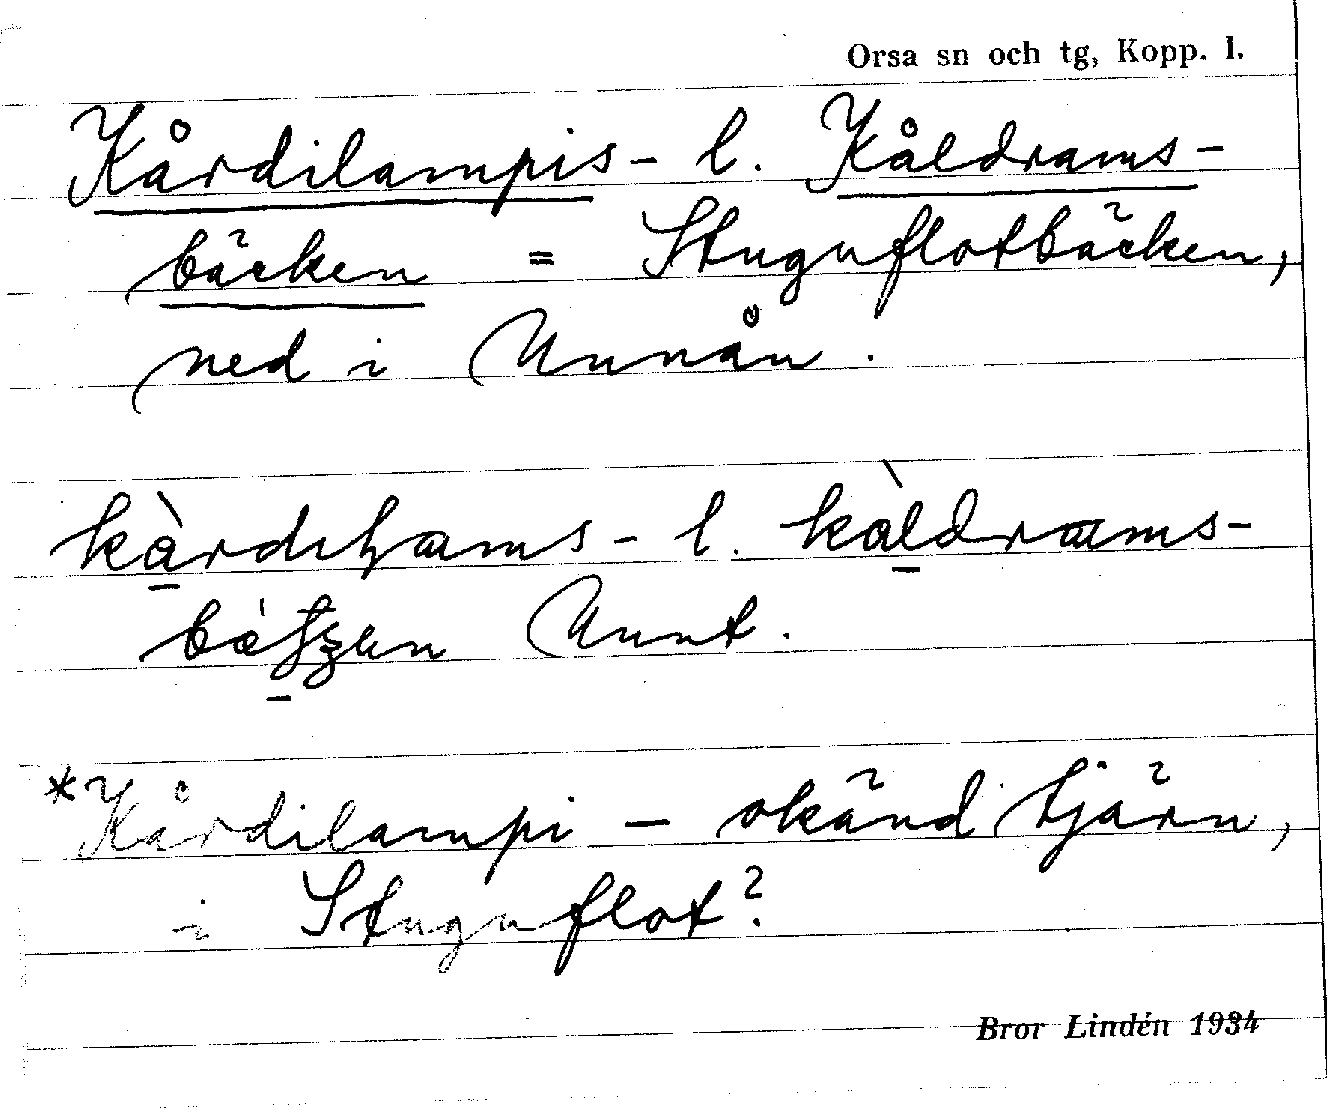 Orsa sn och tg, Kopp. l.
Kårdilampis- l. Kåldrams-
bäcken = Stuguflotbäcken,
ned i Unnån.
l.
Unnt.
*Kårdilampi – okänd tjärn,
i Stuguflot?
Bror Lindén 1934